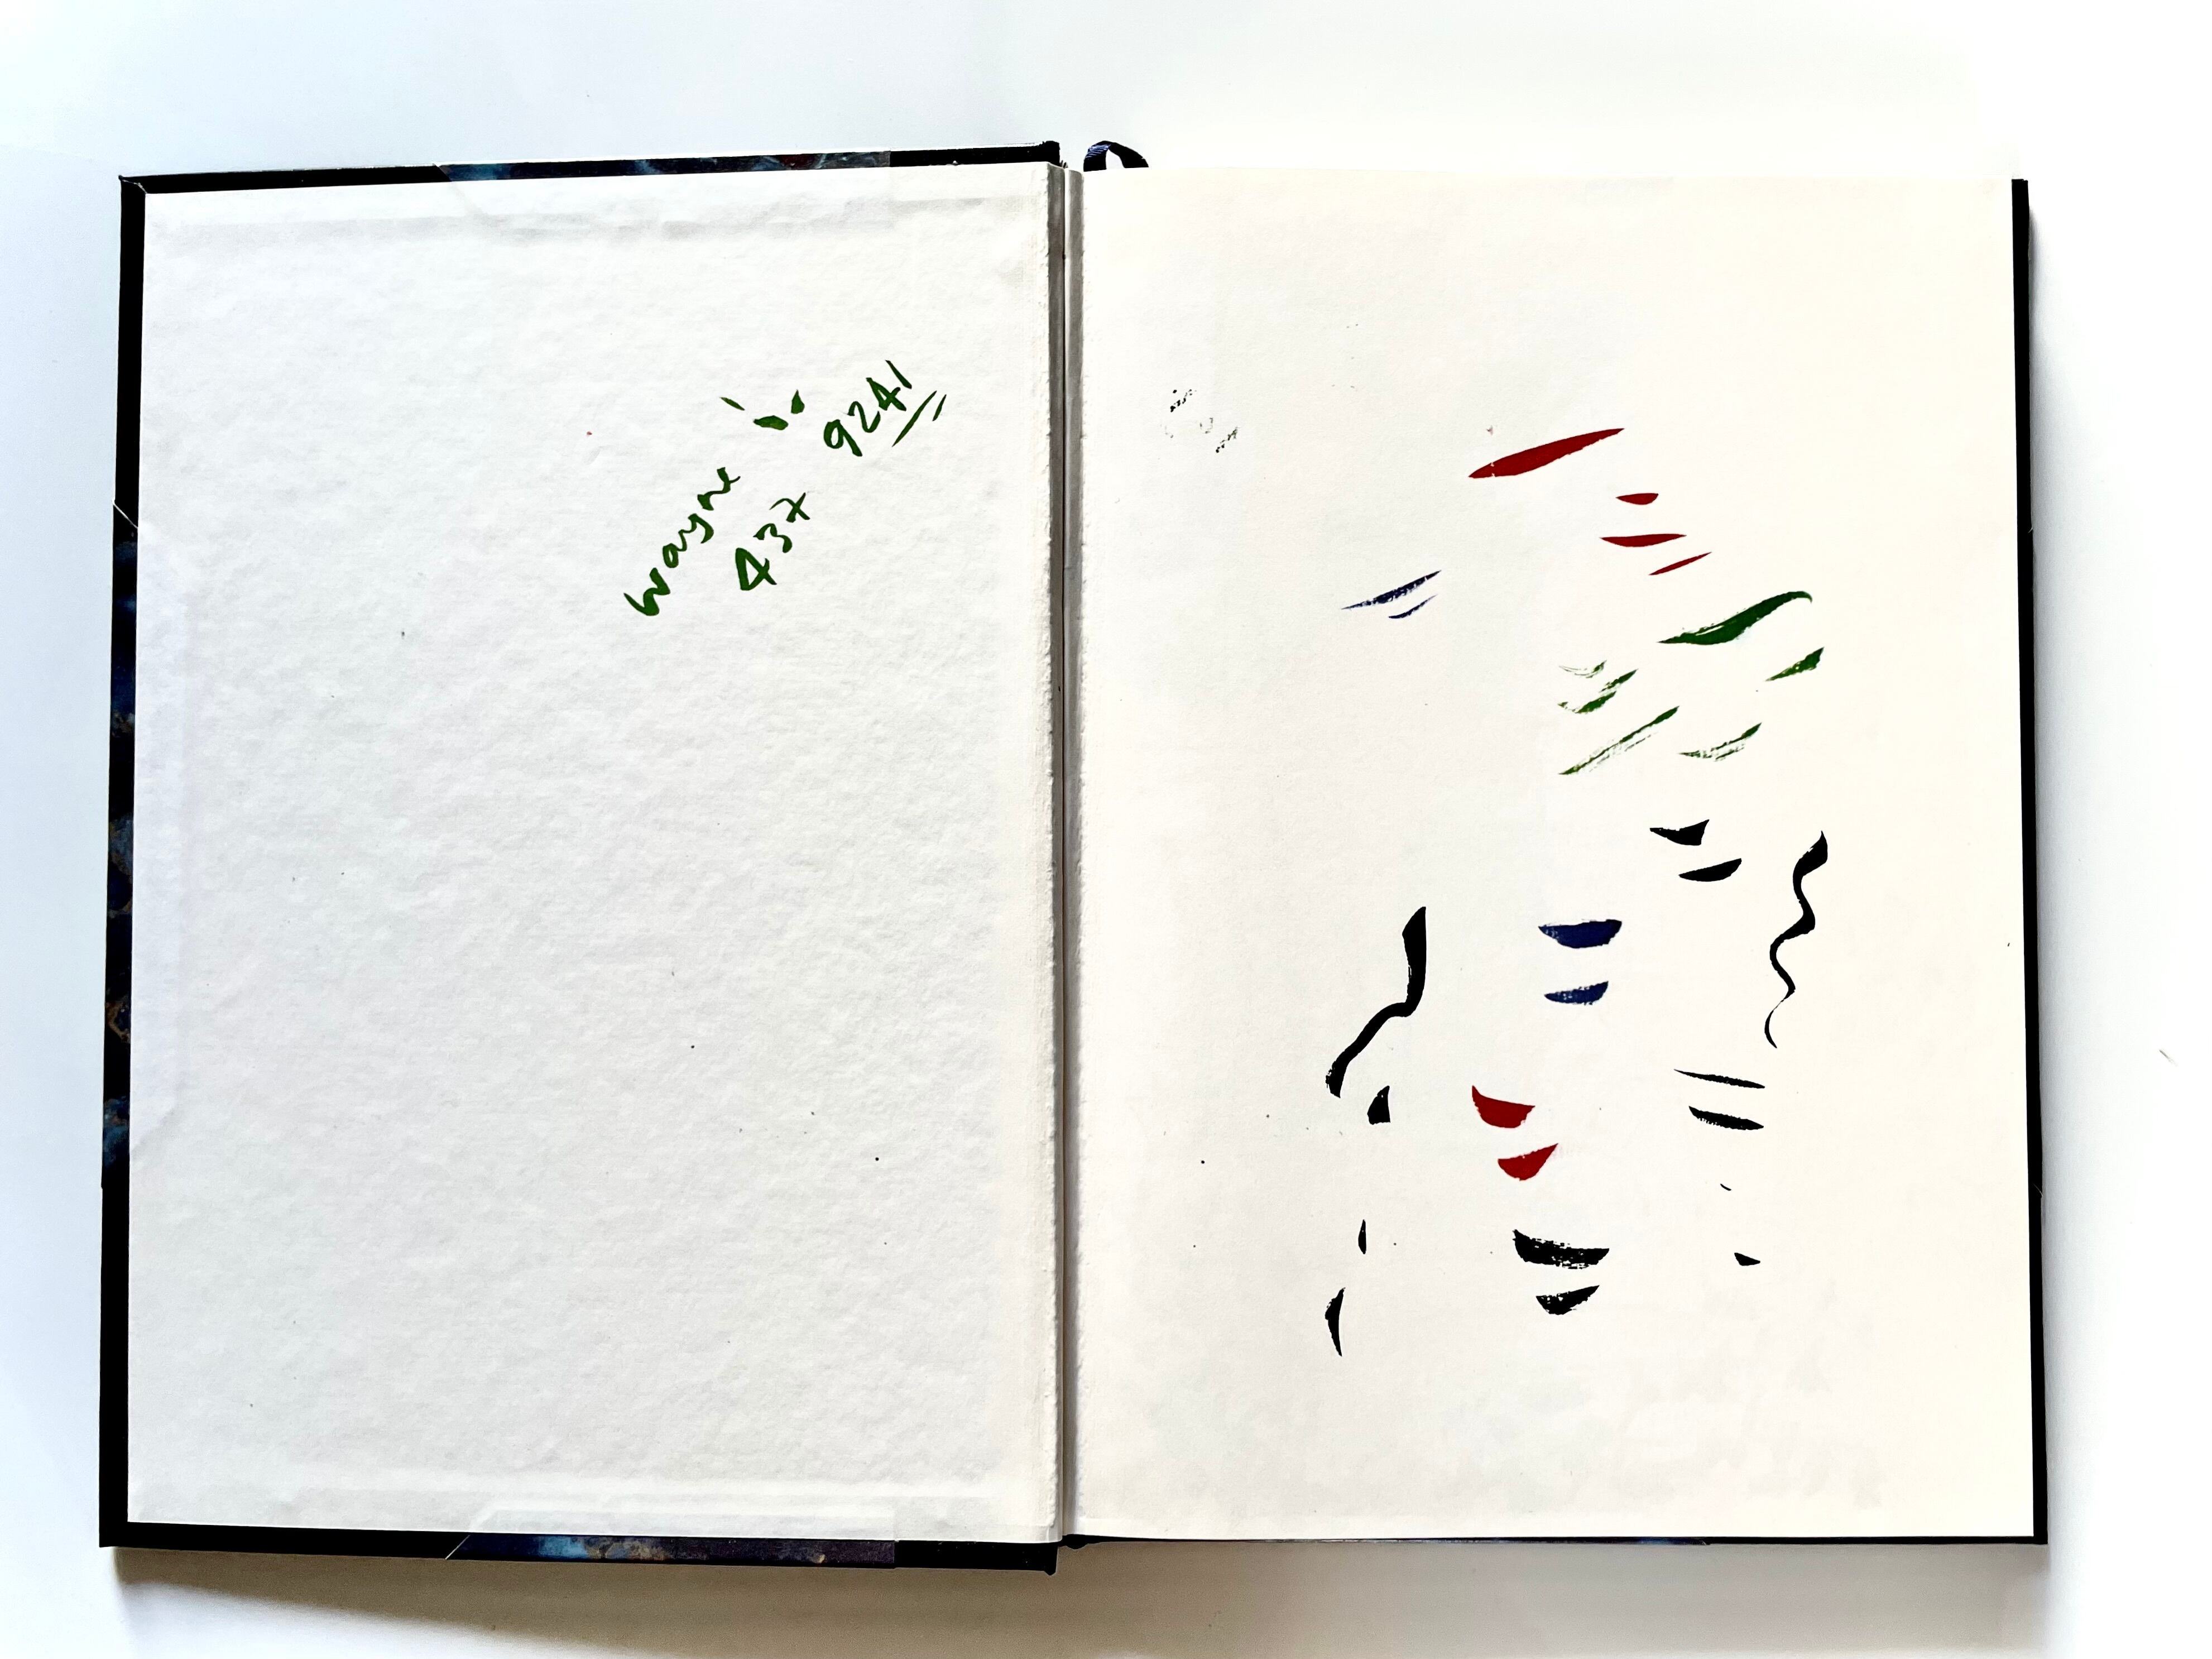 Wayne
437 9241